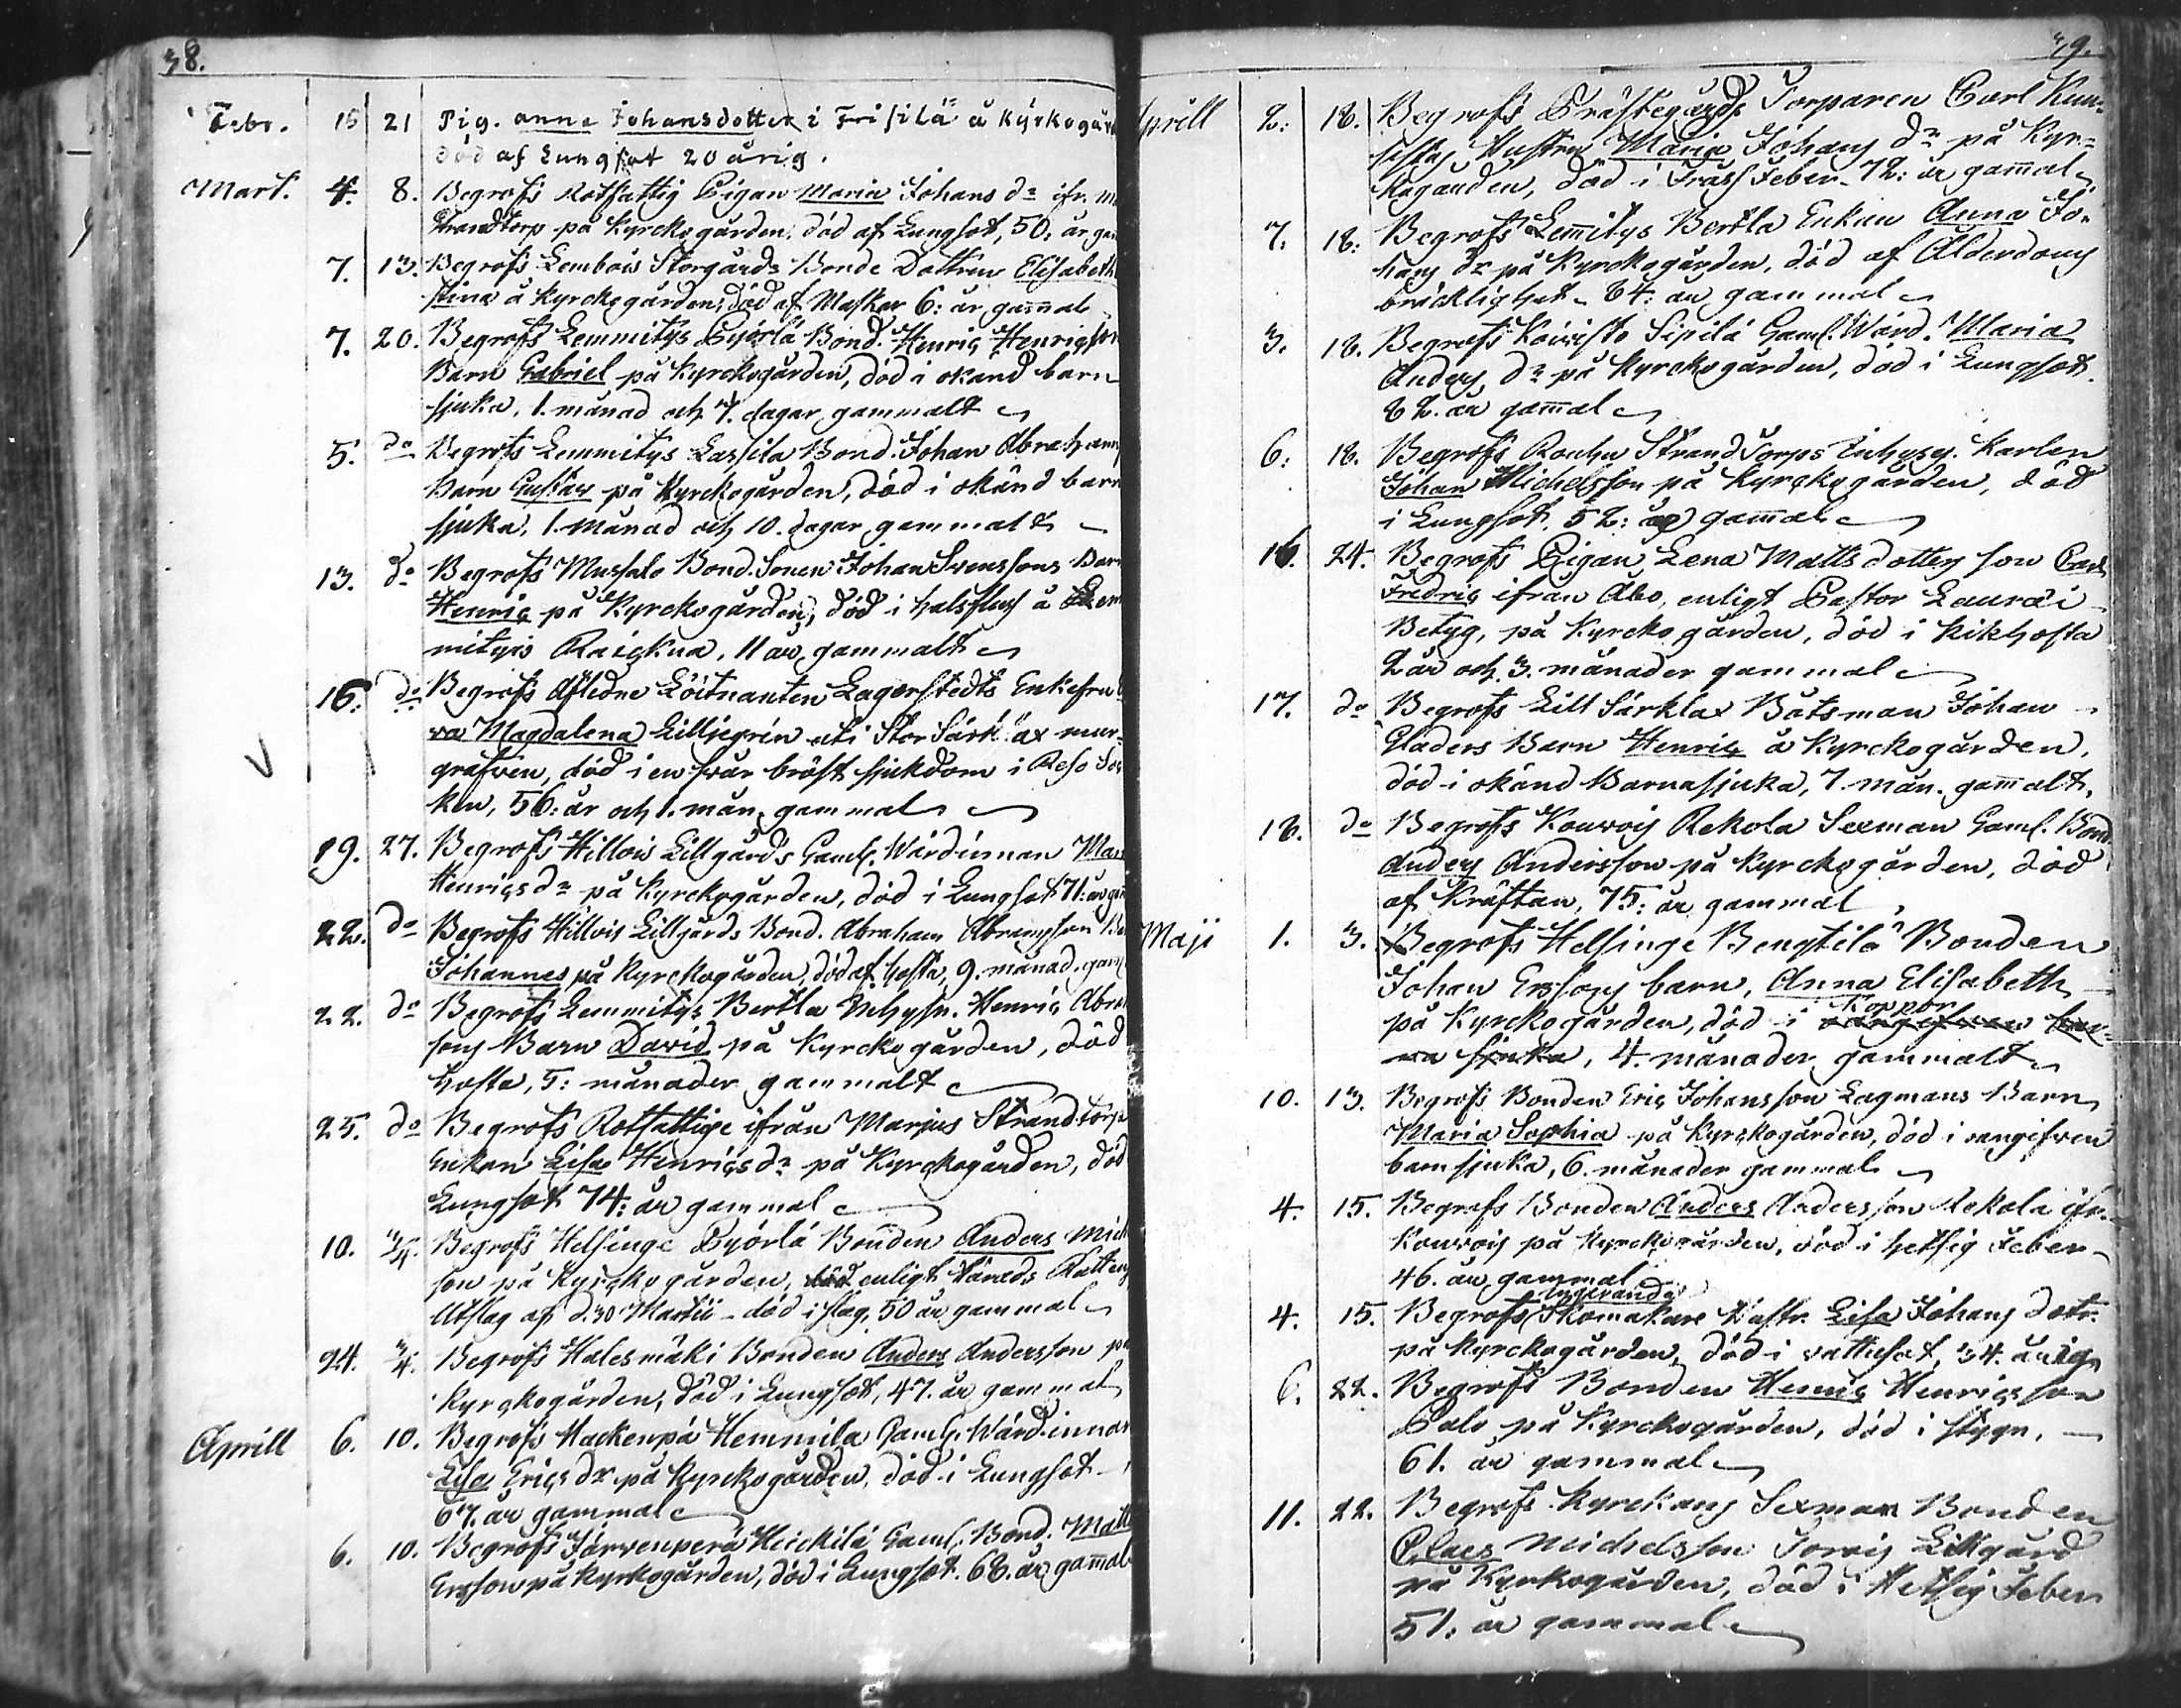 38.
Febr. 15 21 Pig. anna Johansdotter i Frisilä å Kÿrkogår
död af Lungsot 20 årig.
Mart. 4. 8. Begrofs Rotfattig Pigan Maria Johans dr ifr.
Strandtorp på Kyrckogården, död af Lungsot, 50: år
7. 13. Begrofs Lembois Storgårds Bonde Dottren Elisabeth
Stina å Kyrckogården, död af Maskar 6: år gammal
7. 20. Begrofs Lemmitys Pyörlä Bond. Henric Henricsson
Barn Gabriel på Kyrckogården, död i okänd barn
sjuka, 1. månad och 7. dagar gammalt
5. do Begrofs Lemmitys Lassila Bond. Johan Abrahams
barn Gustav på Kyrckogården, död i okänd barn
sjuka, 1. Månad och 10. dagar gammalt
13. do Begrofs Mussalo Bond. Sonen Johan Svenssons Barn
Henric på Kyrckogården, död i halsfluss å Lem
mityis Raickua, 11 år gammalt
16: do Begrofs Afledne Löitnanten Lagerstedts Enkefru
va Magdalena Lilliegren uti Stor Särkilax mur-
grafven, död i en svår bröst sjukdom i Reso Soc
ken, 56: år och 1. mån. gammal
19. 27. Begrofs Hillois Lillgårds Gaml. Wärdinnan
Henrics dr på Kyrckogården, död i Lungsot 71: år
22. do Begrofs Hillois Lillgårds Bond. Abraham Abramsson
Johannes på Kyrckogården, död af hosta, 9. månad. gam
22. do Begrofs Lemmitys Bertla Inhysn. Henric Abra
sons Barn David på Kyrckogården, död
hosta, 5: månader gammalt
25. do Begrofs Rotfattige ifrån Marjus Strandtorp
Enkan Lisa Henrics dr på Kyrckogården, död
Lungsot 74: år gammal
10. Begrofs Helsinge Pyörlä Bonden Anders Mich
son på Kyrckogården, enligt Härads Rättens
Utslag af d. 30 Martii - död i slag, 50 år gammal
24. Begrofs Halesmäki Bonden Anders Andersson på
Kyrckogården, död i Lungsot, 47. år gammal
Aprill 6. 10. Begrofs Hackenpä Hemmila Gaml. Wärdinnan
Lisa Erics dr på Kyrckogården, död i Lungsot
67. år gammal
6. 10. Begrofs Järvenperä Heickilä Gaml. Bond. Matts
Ersson på Kyrkogården, död i Lungsot. 68. år gammal
39.
Aprill 2: 18. Begrofs Prästegårds Torparen Carl
Hustru Maria Johans dr på Kyr-
kogården, död i Frass Feber. 72: år gammal
7. 18: Begrofs Lemmitys Bertla Enkan Anna Jo-
hans dr på Kyrckogården, död af Ålderdoms
bräcklighet. 84: år gammal
3. 18. Begrofs Koivisto Sipilä Gaml. Wärd. Maria
Anders dr på Kyrckogården, död i Lungsot
82. år gammal
6: 18. Begrofs Rouhu Strand Torps Inhyses. Karlen
Johan Michelsson på Kyrckogården, död
i Lungsot. 52: år gammal
16. 24. Begrofs Pigan Lena Mattsdotters son Carl
Fredric ifrån Åbo, enligt Pastor Lauræi
Betyg, på Kyrckogården, död i Kikhosta
2 år och 3. månader gammal
17. do Begrofs Lill Särklax Båtsman Johan
Gladers Barn Henric å Kyrckogården,
död i okänd Barnasjuka, 7. mån. gammalt,
18. do Begrofs Kouvois Rekola Sexman Gaml. Bond.
Anders Andersson på Kyrckogården, död
af Kräftan, 75: år gammal
Maji 1. 3. Begrofs Helsinge Bengtilä Bonden
Johan Erssons barn, Anna Elisabeth
på Kyrckogården, död i Koppor oangifven bar-
na sjuka, 4. månader gammalt
10. 13. Begrofs Bonden Eric Johansson Lagmans Barn
Maria Sophia på Kyrckogården, död i oangifven
barnsjuka, 6. månader gammal
4. 15. Begrofs Bonden Anders Andersson Rekola ifr.
Kouvois på Kyrckogården, död i hetsig Feber
46. år gammal
4. 15. Begrofs Skomakare Hustr. Lisa Johans dotr.
på Kyrckogården, död i vattusot, 34. årig
6. 22. Begrofs Bonden Henric Henricsson
Palo på Kyrckogården, död i stygn,
61. år gammal
11. 22. Begrofs Kyrckans Sexman Bonden
Claes Michelsson Torois Lillgård
på Kyrkogården, död i Hetsig Feber
51: år gammal